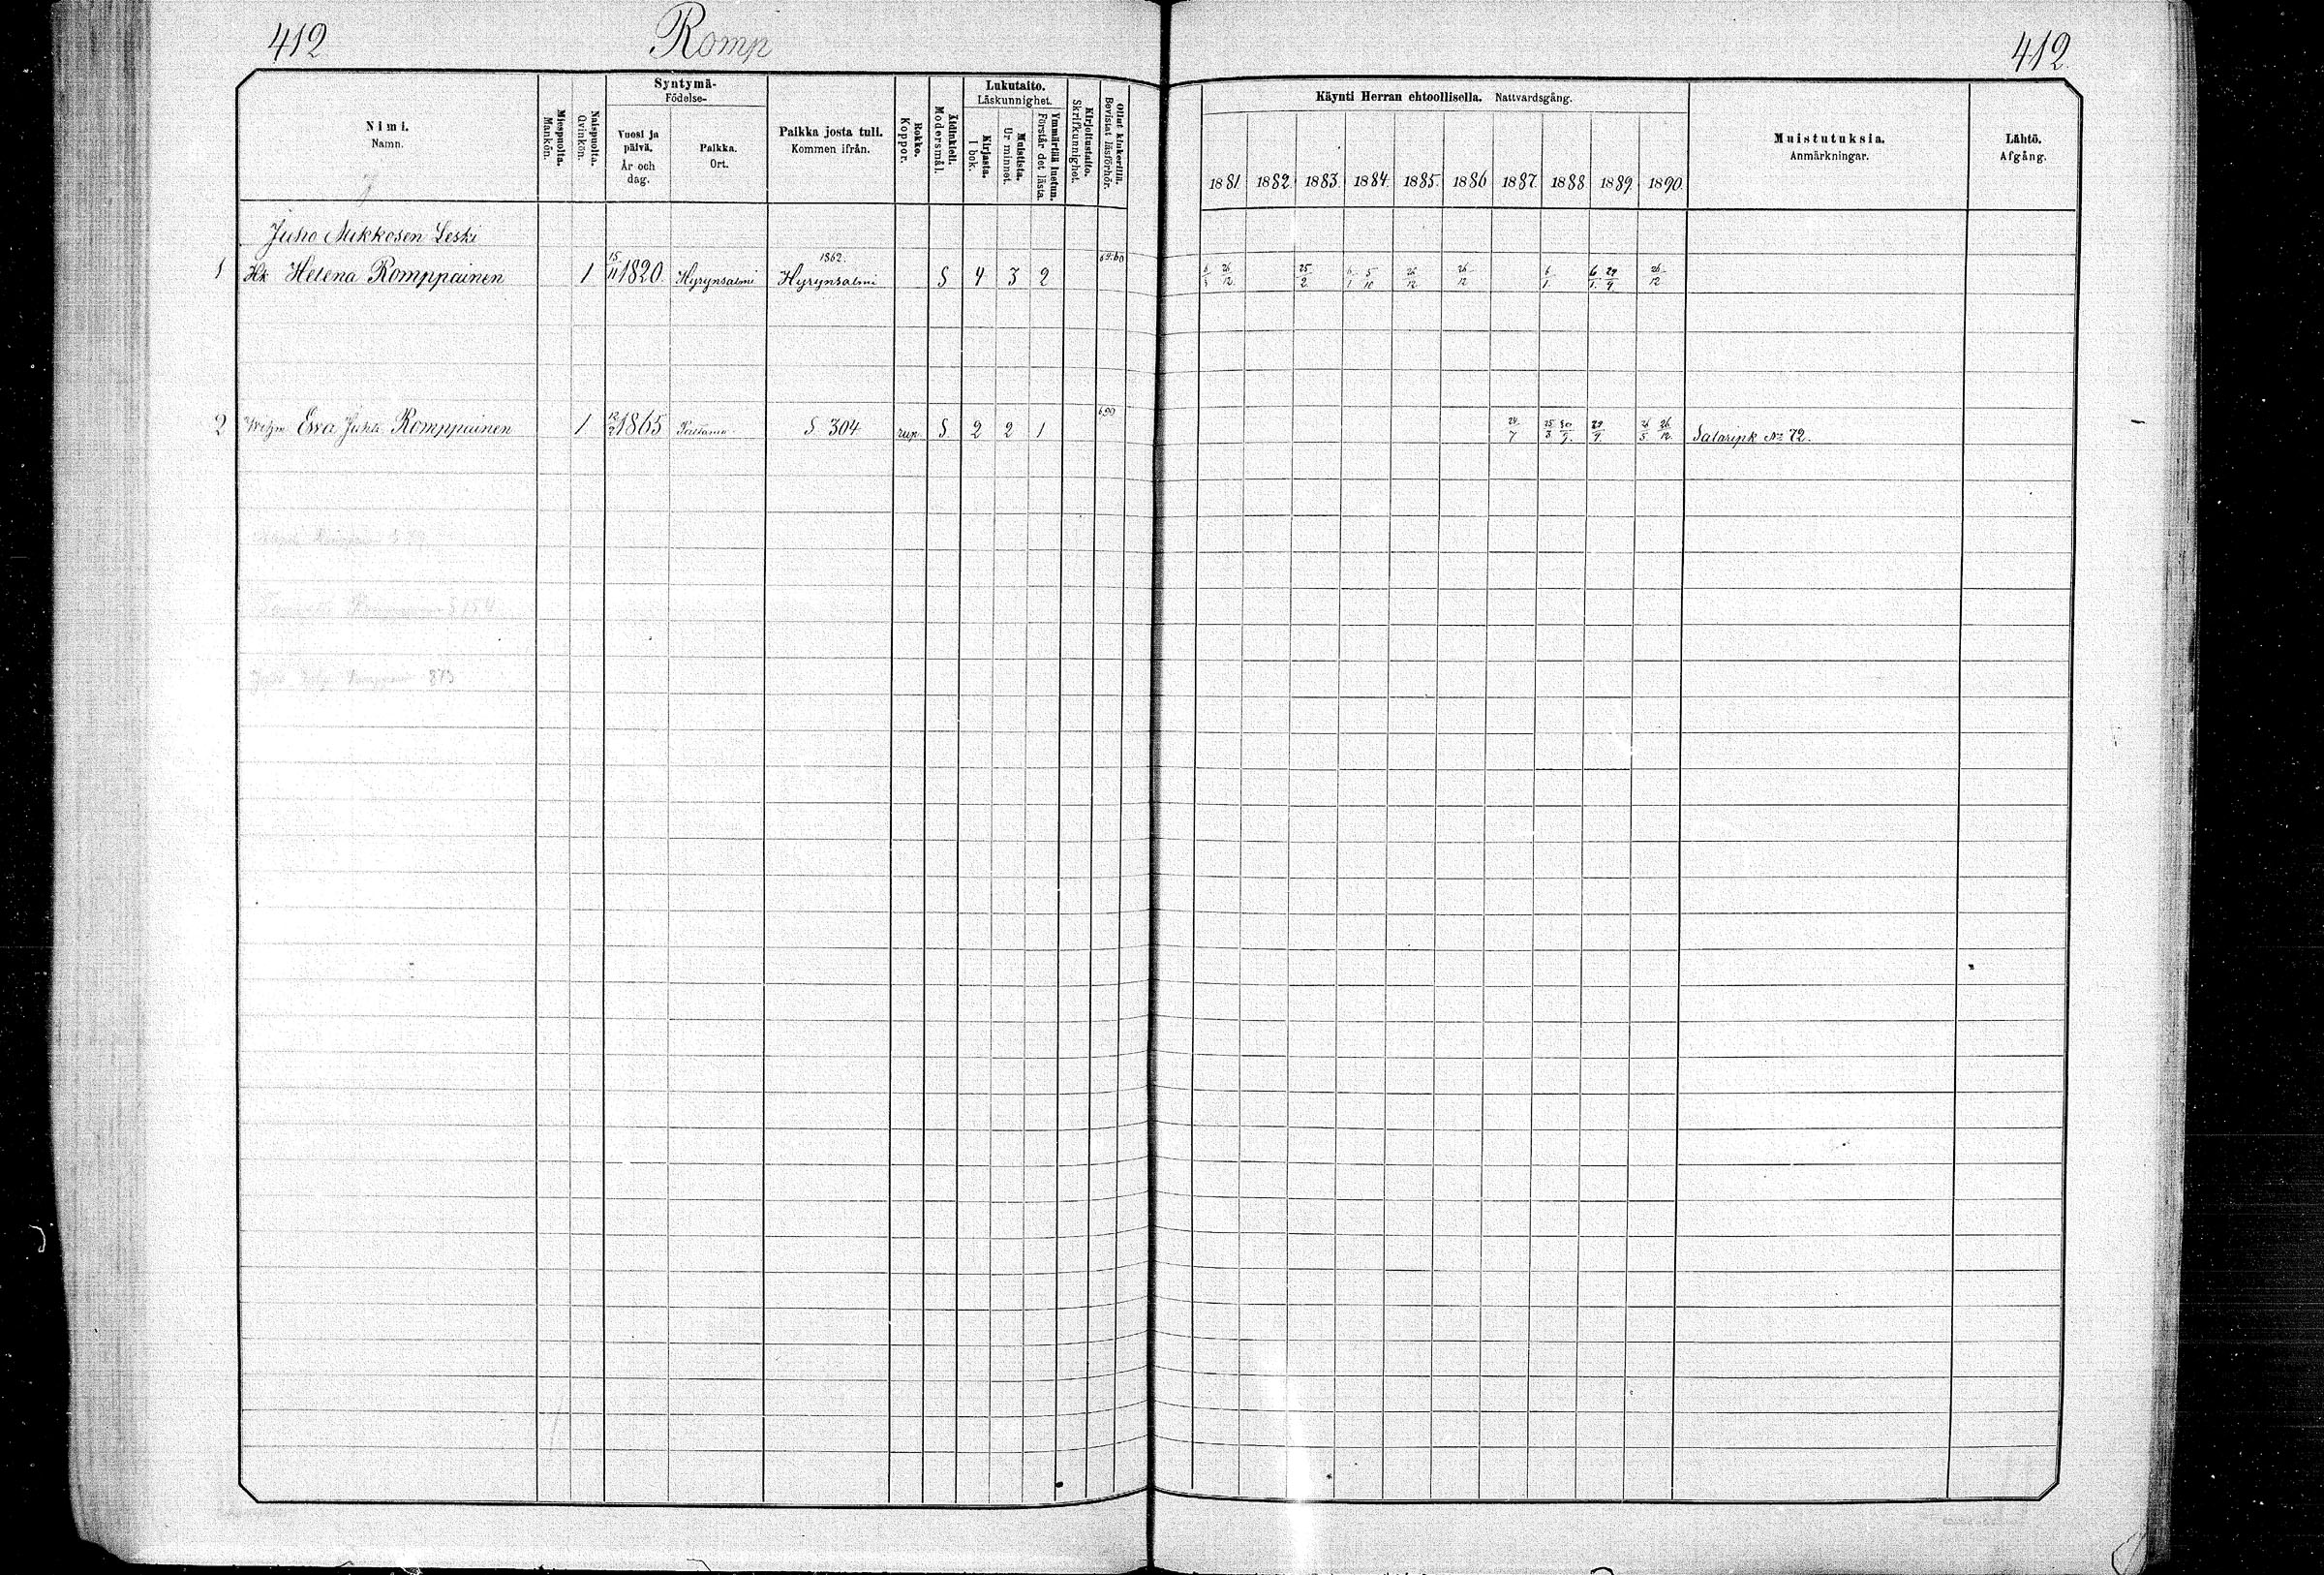 412 Romp 412
Nimi. Namn.
Miespuolta. Mankön.
Naispuolta. Qvinkön.
Syntymä- Födelse-
Vuosi ja päivä. År och dag.
Paikka. Ort.
Paikka josta tuli. Kommen ifrån.
Rokko. Koppor.
Äidinkieli. Modersmål.
Lukutaito. Läskunnighet.
Kirjasta. I bok.
Muistista. Ur minnet.
Ymmärtää luetun. Förstår det lästa.
Kirjoitustaito. Skrifkunnighet.
Ollut kinkerillä. Bevistat läsförhör.
Käynti Herran ehtoollisella. Nattvardsgång.
1881 1882. 1883. 1884. 1885. 1886 1887. 1888 1889. 1890.
Muistutuksia. Anmärkningar.
Lähtö. Afgång.
Juho Mikkosen Leski
1 Hk Helena Romppainen 1 15/11 1820. Hyrynsalmi 1862. Hyrynsalmi S 4 3 2 26/12. 25/2 6/1 5/10 26/12 26/12 6/1. 6/1. 29/9. 26/12
2 Eva Juho Romppainen 1 12/2 1865 S. 304 rup. S. 2 2 1 690 24/7 25/3. 30/9. 29/9. 26/5. 26/12. Salaripk No 72.